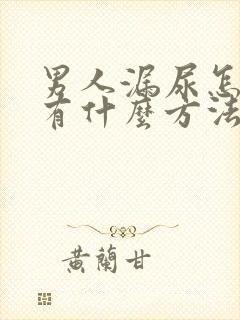 男人漏尿怎
有什麼方法
黃蘭甘